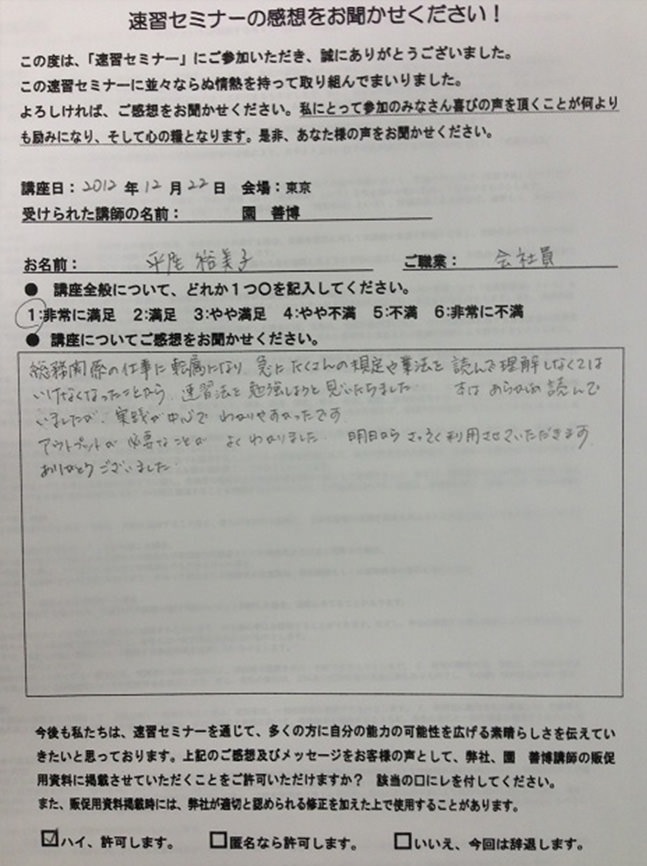 速習セミナーの感想をお聞かせください！
この度は、「速習セミナー」にご参加いただき、誠にありがとうございました。
この速習セミナーに並々ならぬ情熱を持って取り組んでまいりました。
よろしければ、ご感想をお聞かせください。私にとって参加のみなさん喜びの声を頂くことが何より
も励みになり、そして心の糧となります。是非、あなた様の声をお聞かせください。
講座日：2012 年 12 月 22 日 会場：東京
受けられた講師の名前： 園 善博
お名前： 平座 裕美子 ご職業： 会社員
● 講座全般について、どれか１つ○を記入してください。
1:非常に満足 2:満足 3:やや満足 4:やや不満 5:不満 6:非常に不満
● 講座についてご感想をお聞かせください。
総務関係の仕事に転属になり 急にたくさんの規定や業法を 読んで理解しなくては
いけなくなったことから、速習法を勉強しようと思いたちました 本は あらかじめ 読んで
いましたが、実践が中心で わかりやすかったです
アウトプットが 必要なことが よくわかりました 明日から さっそく利用させていただきます
ありがとうございました
今後も私たちは、速習セミナーを通じて、多くの方に自分の能力の可能性を広げる素晴らしさを伝えてい
きたいと思っております。上記のご感想及びメッセージをお客様の声として、弊社、園 善博講師の販促
用資料に掲載させていただくことをご許可いただけますか？ 該当の口にレを付してください。
また、販促用資料掲載時には、弊社が適切と認められる修正を加えた上で使用することがあります。
☑ハイ、許可します。 □匿名なら許可します。 □いいえ、今回は辞退します。